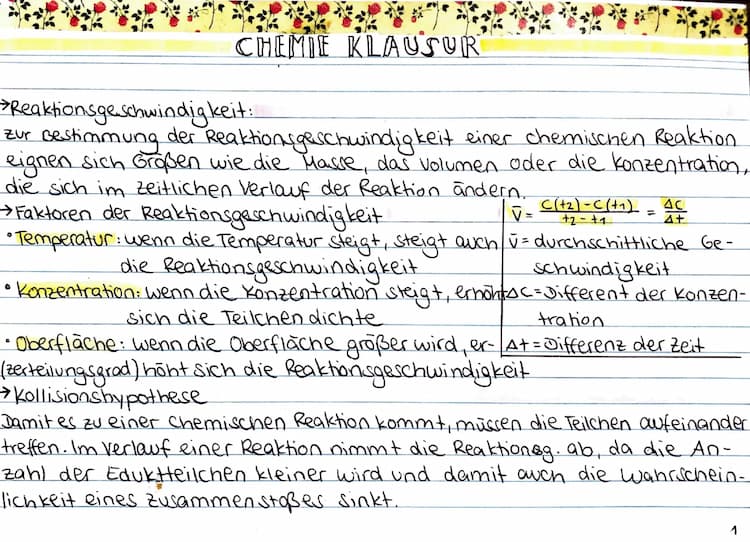 CHEMIE KLAUSUR
→Reaktionsgeschwindigkeit:
zur Bestimmung der Reaktionsgeschwindigkeit einer chemischen Reaktion
eignen sich Größen wie die Masse, das Volumen oder die Konzentration,
die sich im zeitlichen Verlauf der Reaktion ändern.
→Faktoren der Reaktionsgeschwindigkeit
• Temperatur: wenn die Temperatur steigt, steigt auch
die Reaktionsgeschwindigkeit
• Konzentration: wenn die Konzentration steigt, erhöht
sich die Teilchendichte
• Oberfläche: wenn die Oberfläche größer wird, er-
(zerteilungsgrad) höht sich die Reaktionsgeschwindigkeit
v̄ = C(t2)-C(t1) / t2-t1 = ΔC / Δt
v̄ = durchschittliche Ge-
schwindigkeit
ΔC = Different der Konzen-
tration
Δt = Differenz der Zeit
→Kollisionshypothese
Damit es zu einer chemischen Reaktion kommt, müssen die Teilchen aufeinander
treffen. Im Verlauf einer Reaktion nimmt die Reaktionsg. ab, da die An-
zahl der Eduktteilchen kleiner wird und damit auch die Wahrschein-
lichkeit eines Zusammenstoßes sinkt.
1